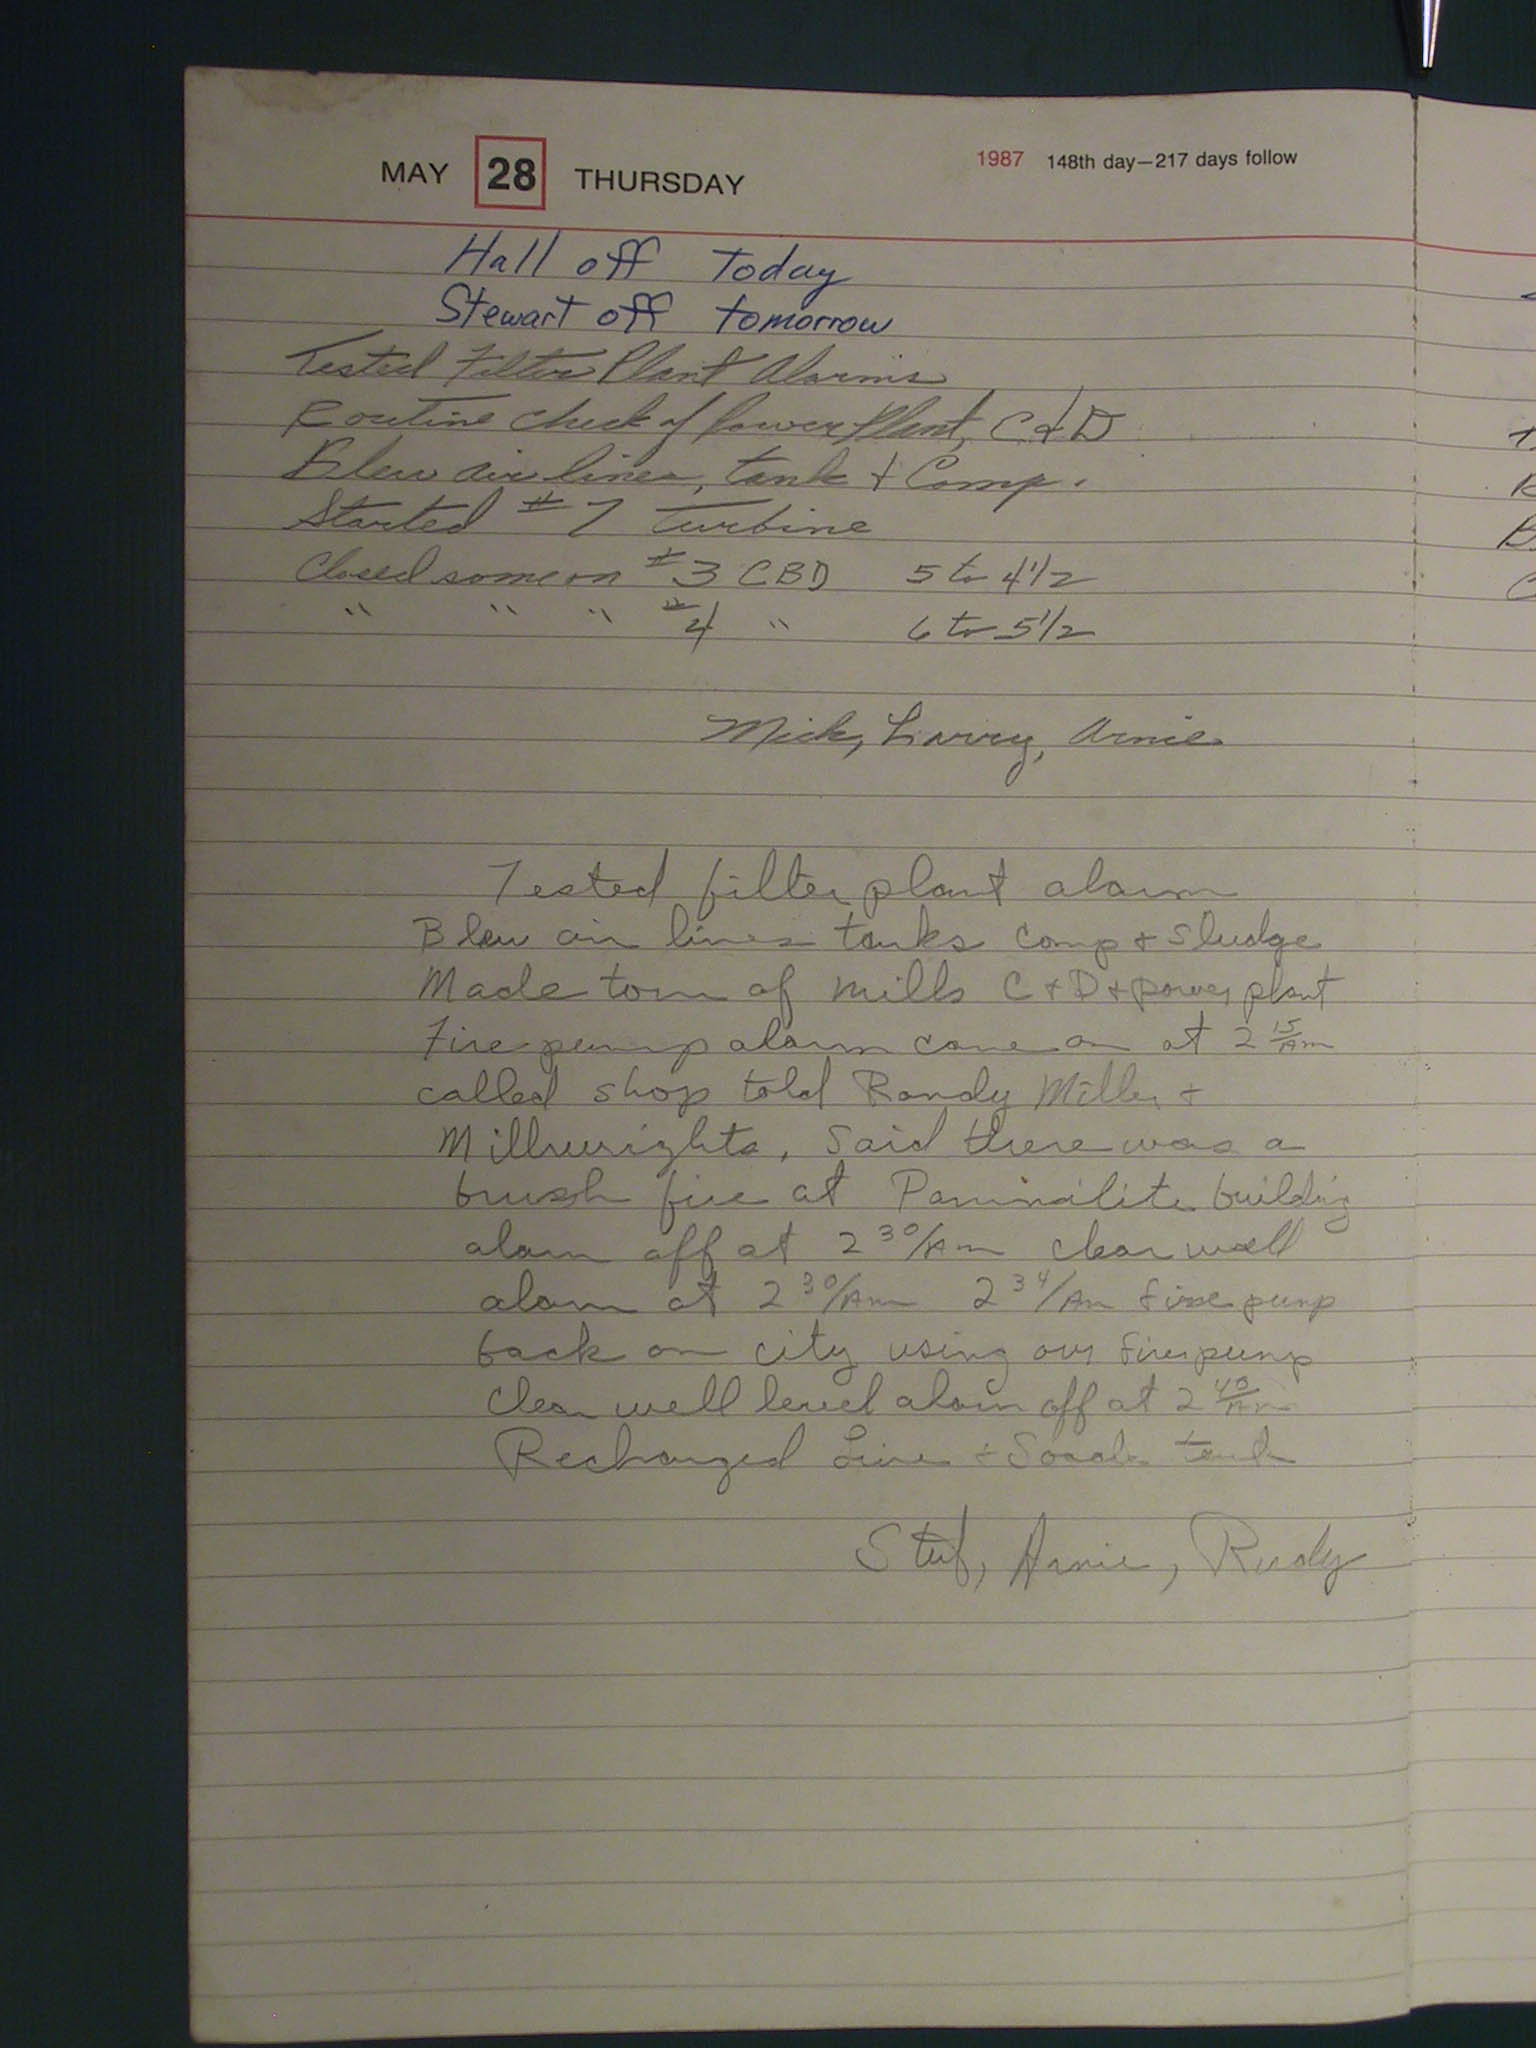 MAY 28 THURSDAY 1987 148th day—217 days follow
Hall off Today
Stewart off tomorrow
Tested Filter Plant Alarms
Routine check of Power Plant, C & D
Blew air lines, tank & Comp.
Started #7 Turbine
Closed some on #3 CBD 5 to 4 1/2
" " " #4 " 6 to 5 1/2
Mick, Larry, Arnie
Tested filter plant alarm
Blew air lines tanks comp & sludge
Made tour of mills C & D & power plant
Fire pump alarm came on at 2 15/AM
called shop told Randy Miller &
Millwrights, said there was a
brush fire at building
alarm off at 2 30/AM clear well
alarm at 2 30/AM 2 34/AM fire pump
back on city using our fire pump
clear well level alarm off at 2 40/AM
Recharged Lime & tank
Arnie, Rudy